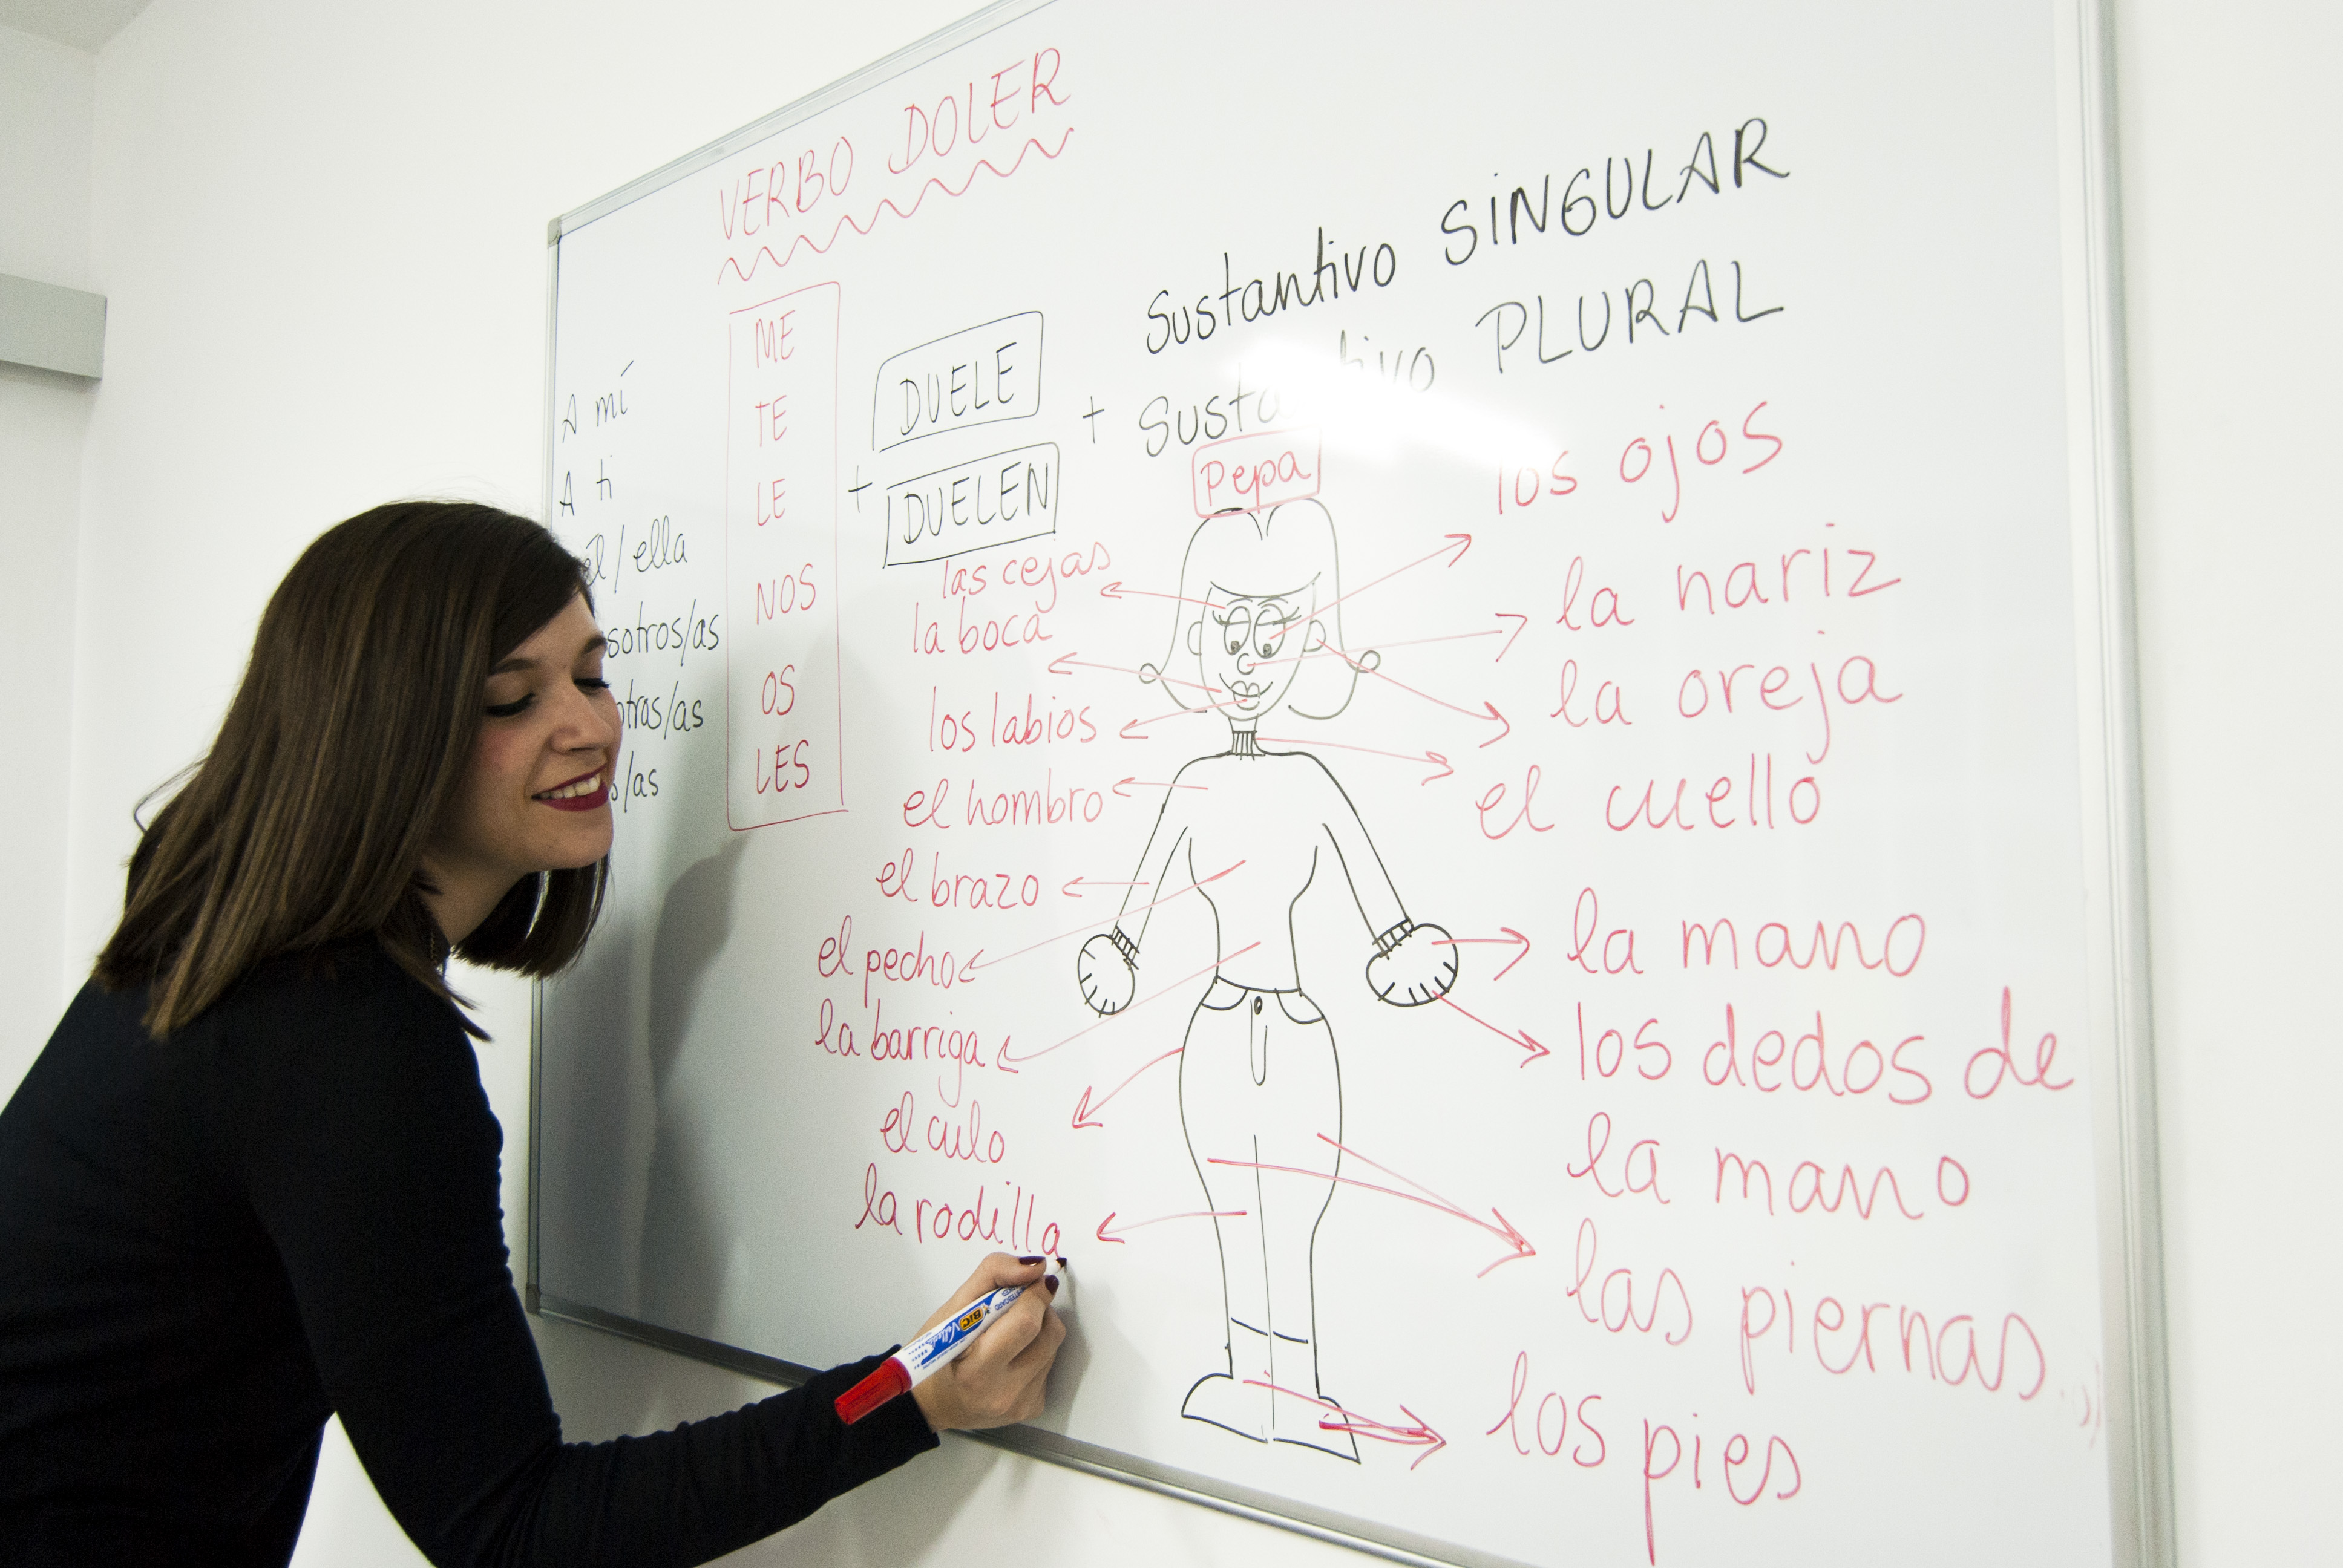 VERBO DOLER
A mí
A ti
él/ella
ME
TE
LE
NOS
OS
LES
+
DUELE
DUELEN
+
Sustantivo SINGULAR
PLURAL
Pepa
las cejas
la boca
los labios
el hombro
el brazo
el pecho
la barriga
el culo
la rodilla
los ojos
la nariz
la oreja
el cuello
la mano
los dedos de
la mano
las piernas
los pies
BIC
Velleda